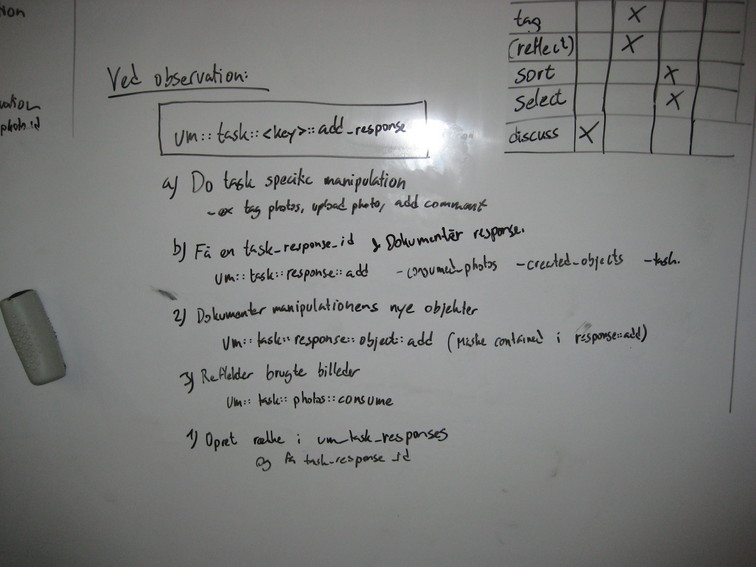 tag X
(reflect) X
sort X
select X
discuss X
photo id
Ved observation:
vm::task::<key>::add_response
a) Do task specific manipulation
- ex tag photos, upload photo, add comment
b) Få en task_response_id & Dokumentér response.
vm::task::response::add - consumed_photos - created_objects - task.
2) Dokumenter manipulationens nye objekter
vm::task::response::object::add (Måske contained i response::add)
3) brugte billeder
vm::task::photos::consume
1) Opret række i vm_task_responses
og få task_response_id